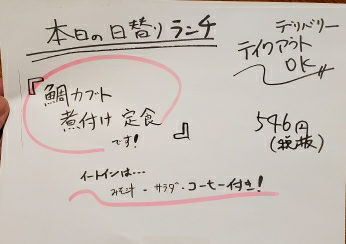 本日の日替りランチ
デリバリー
テイクアウト
OK
『鯛カブト
煮付け定食
です!』
546円
(税抜)
イートインは…
みそ汁・サラダ・コーヒー付き!